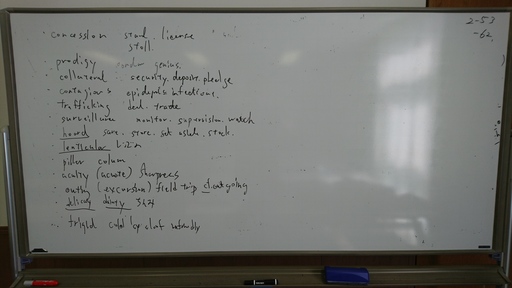 2-53
-62
concession stand. license
stall.
prodigy genius
collateral security. deposit. pledge
contagious epidemic infectious.
trafficking deal. trade
surveillance monitor. supervision. watch
hoard save. store. set aside. stock.
lenticular
pillar column
acuity (acute) sharpness
outing (excursion) field trip outgoing
dilatory
frigid cold icy aloof unfriendly